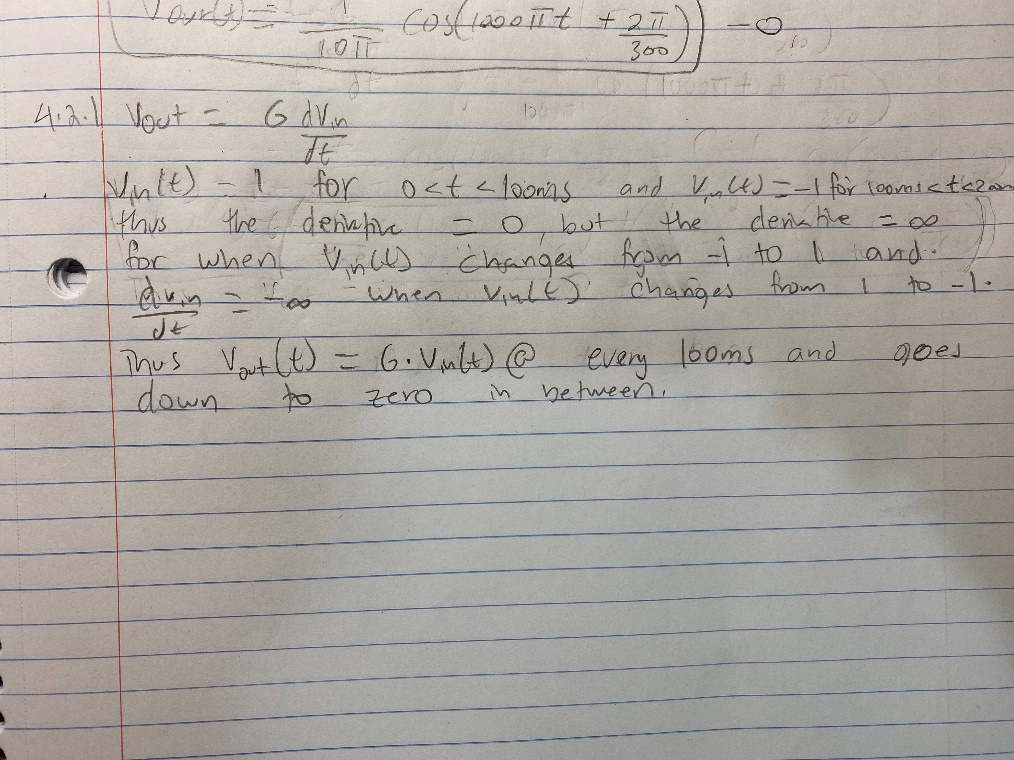 Vout(t) = 1/10π cos(1000πt + 2π/300) - 0
4.2.1 Vout = G dVin/dt
Vin(t) = 1 for 0<t<100ms and Vin(t)=-1 for 100ms<t<200m
thus the derivative = 0, but the derivative = ∞
for when Vin(t) changes from -1 to 1 and
dvin/dt = -∞ when Vin(t) changes from 1 to -1.
Thus Vout(t) = G·Vin(t) @ every 100ms and goes
down to zero in between.